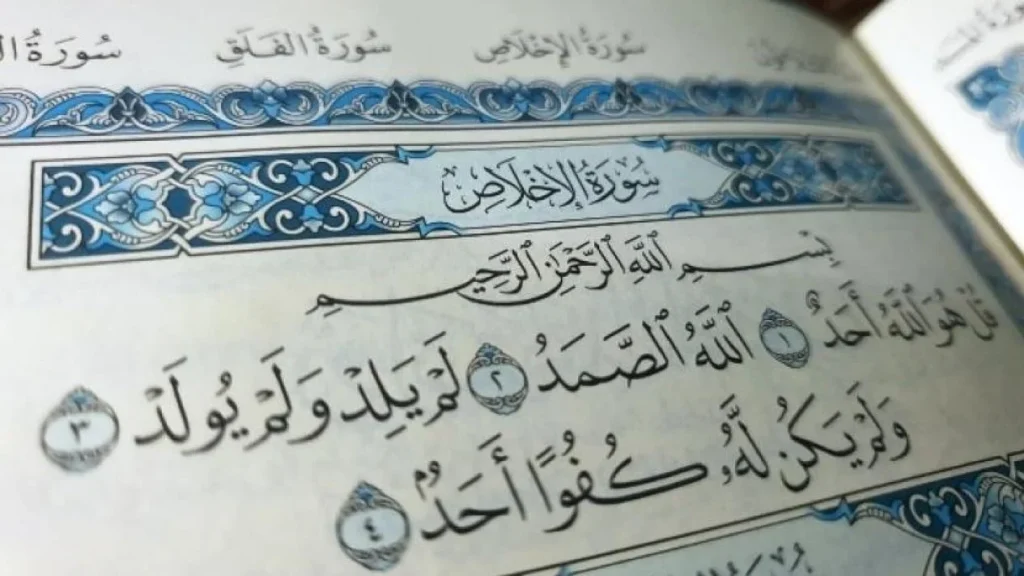 سُورَةُ الإِخْلَاصِ سُورَةُ الفَلَقِ سُورَةُ
سُورَةُ الإِخْلَاصِ
بِسْمِ ٱللَّهِ ٱلرَّحْمَٰنِ ٱلرَّحِيمِ
قُلْ هُوَ ٱللَّهُ أَحَدٌ ١ ٱللَّهُ ٱلصَّمَدُ ٢ لَمْ يَلِدْ وَلَمْ يُولَدْ ٣
وَلَمْ يَكُن لَّهُۥ كُفُوًا أَحَدٌۢ ٤